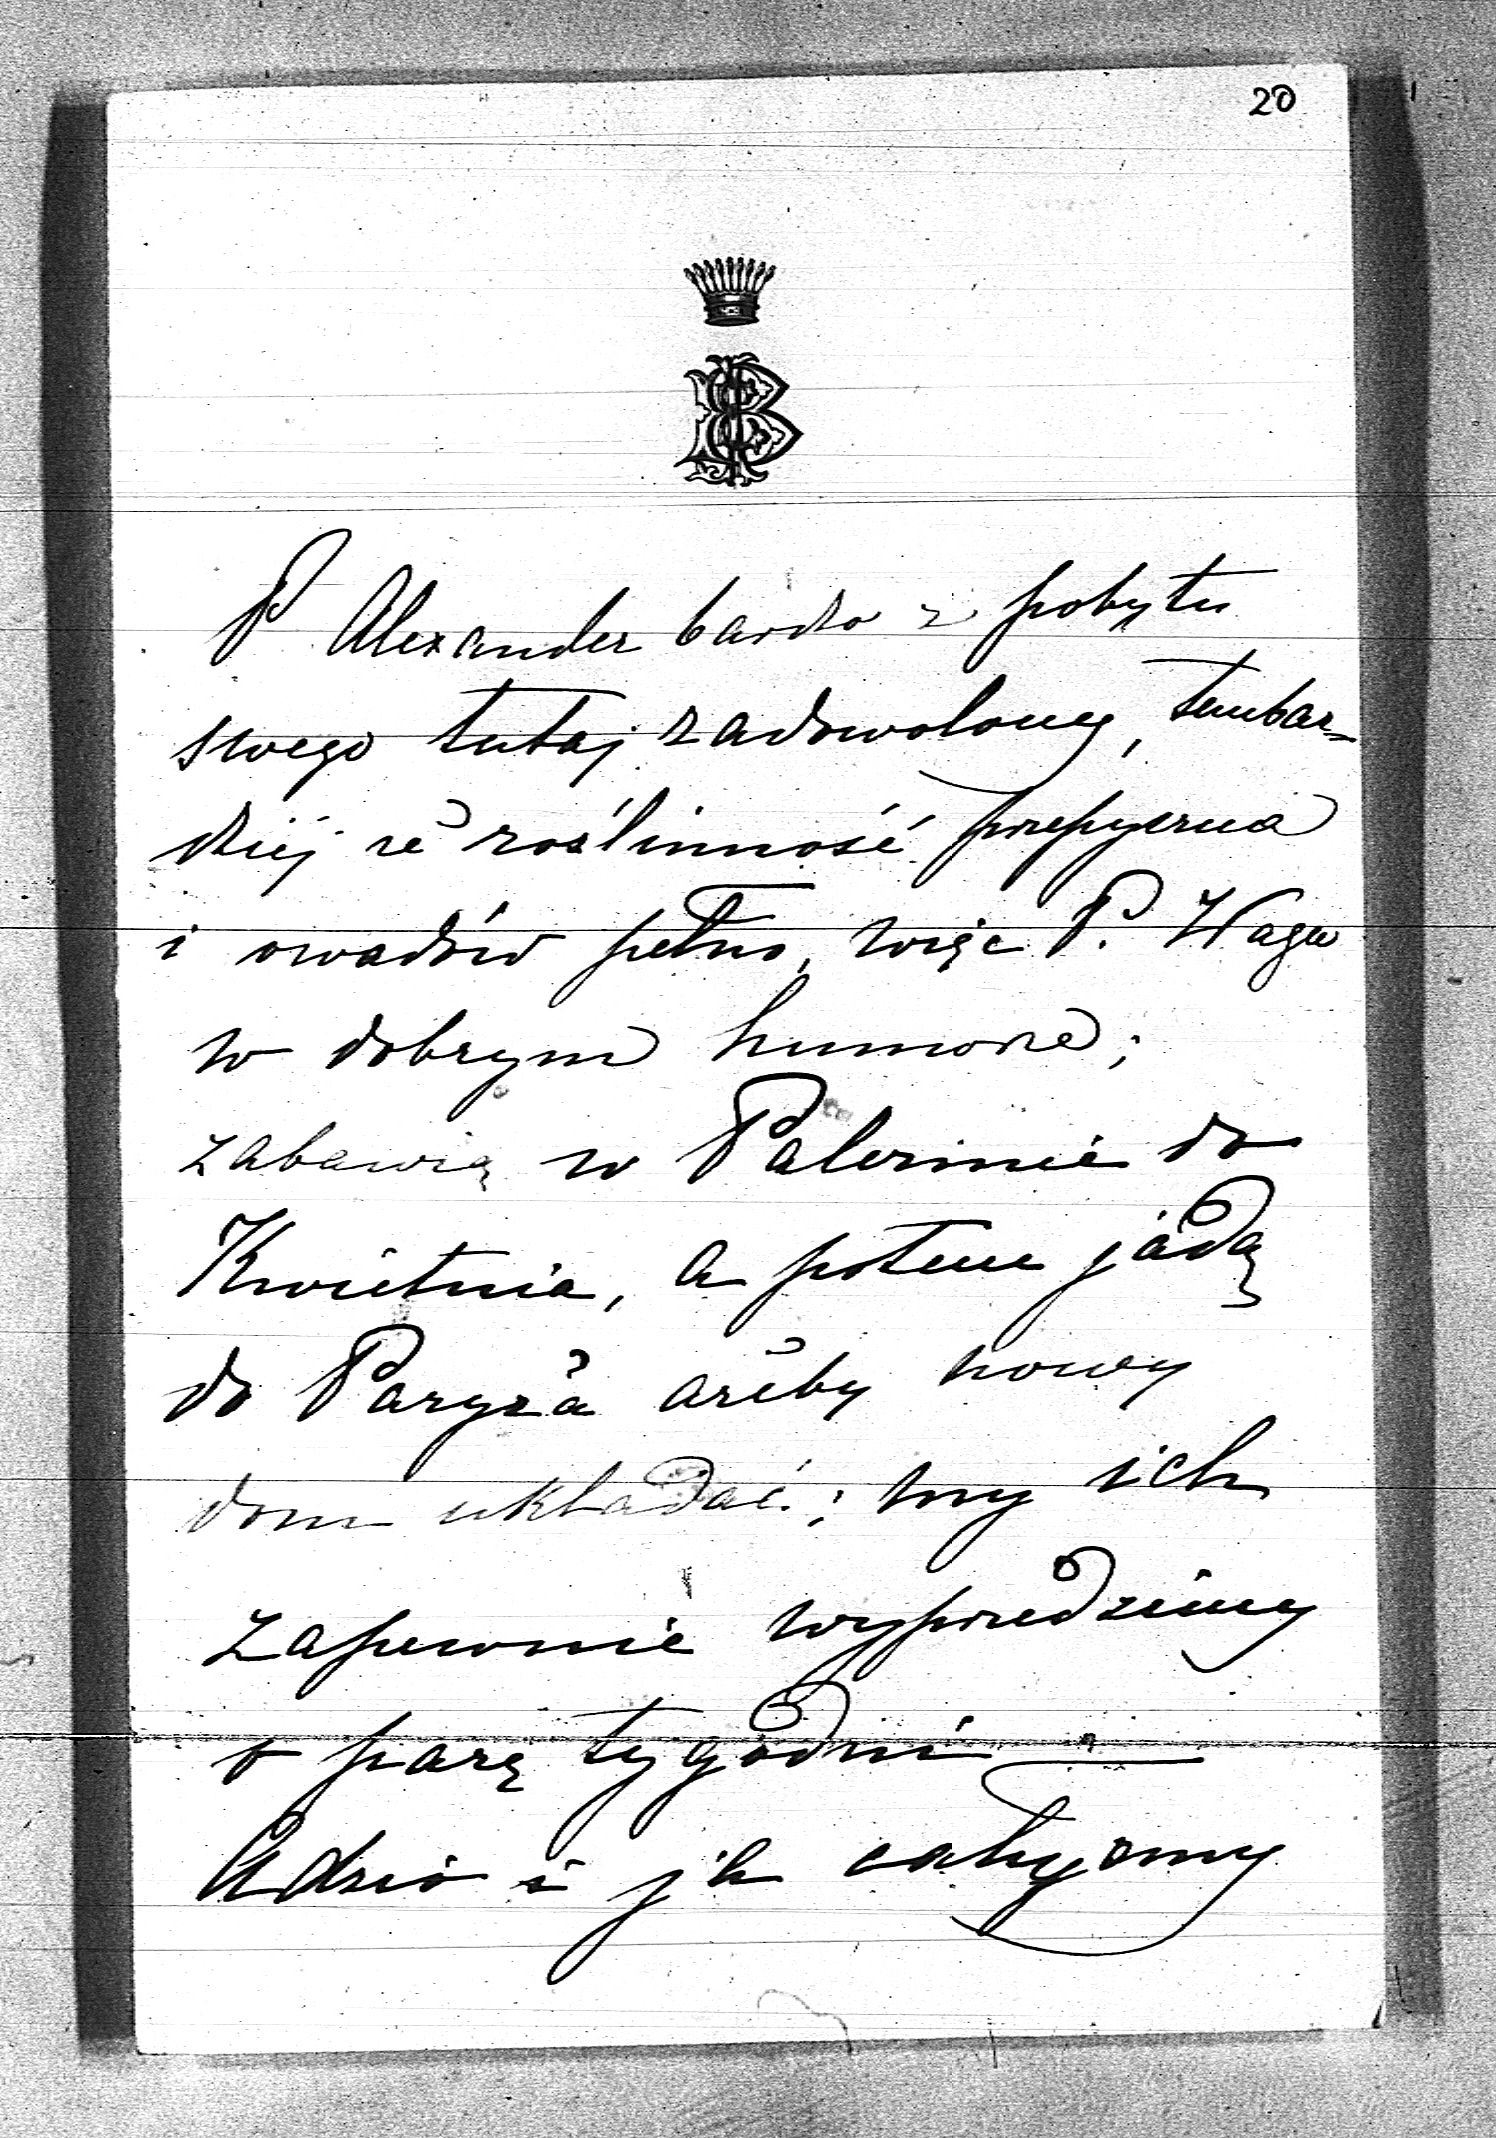 20
P Alexander bardzo z pobytu
swego tutaj zadowolony, tembar-
dziéj że roślinność przepyszna
i owadów pełno, więc P. Waga
w dobrym humorze;
zabawią w Palermie do
Kwietnia, a potem jadą
do Paryża ażeby nowy
dom układać; my ich
zapewnie wyprzedzimy
o parę tygodni —
Adzio i ja całujemy